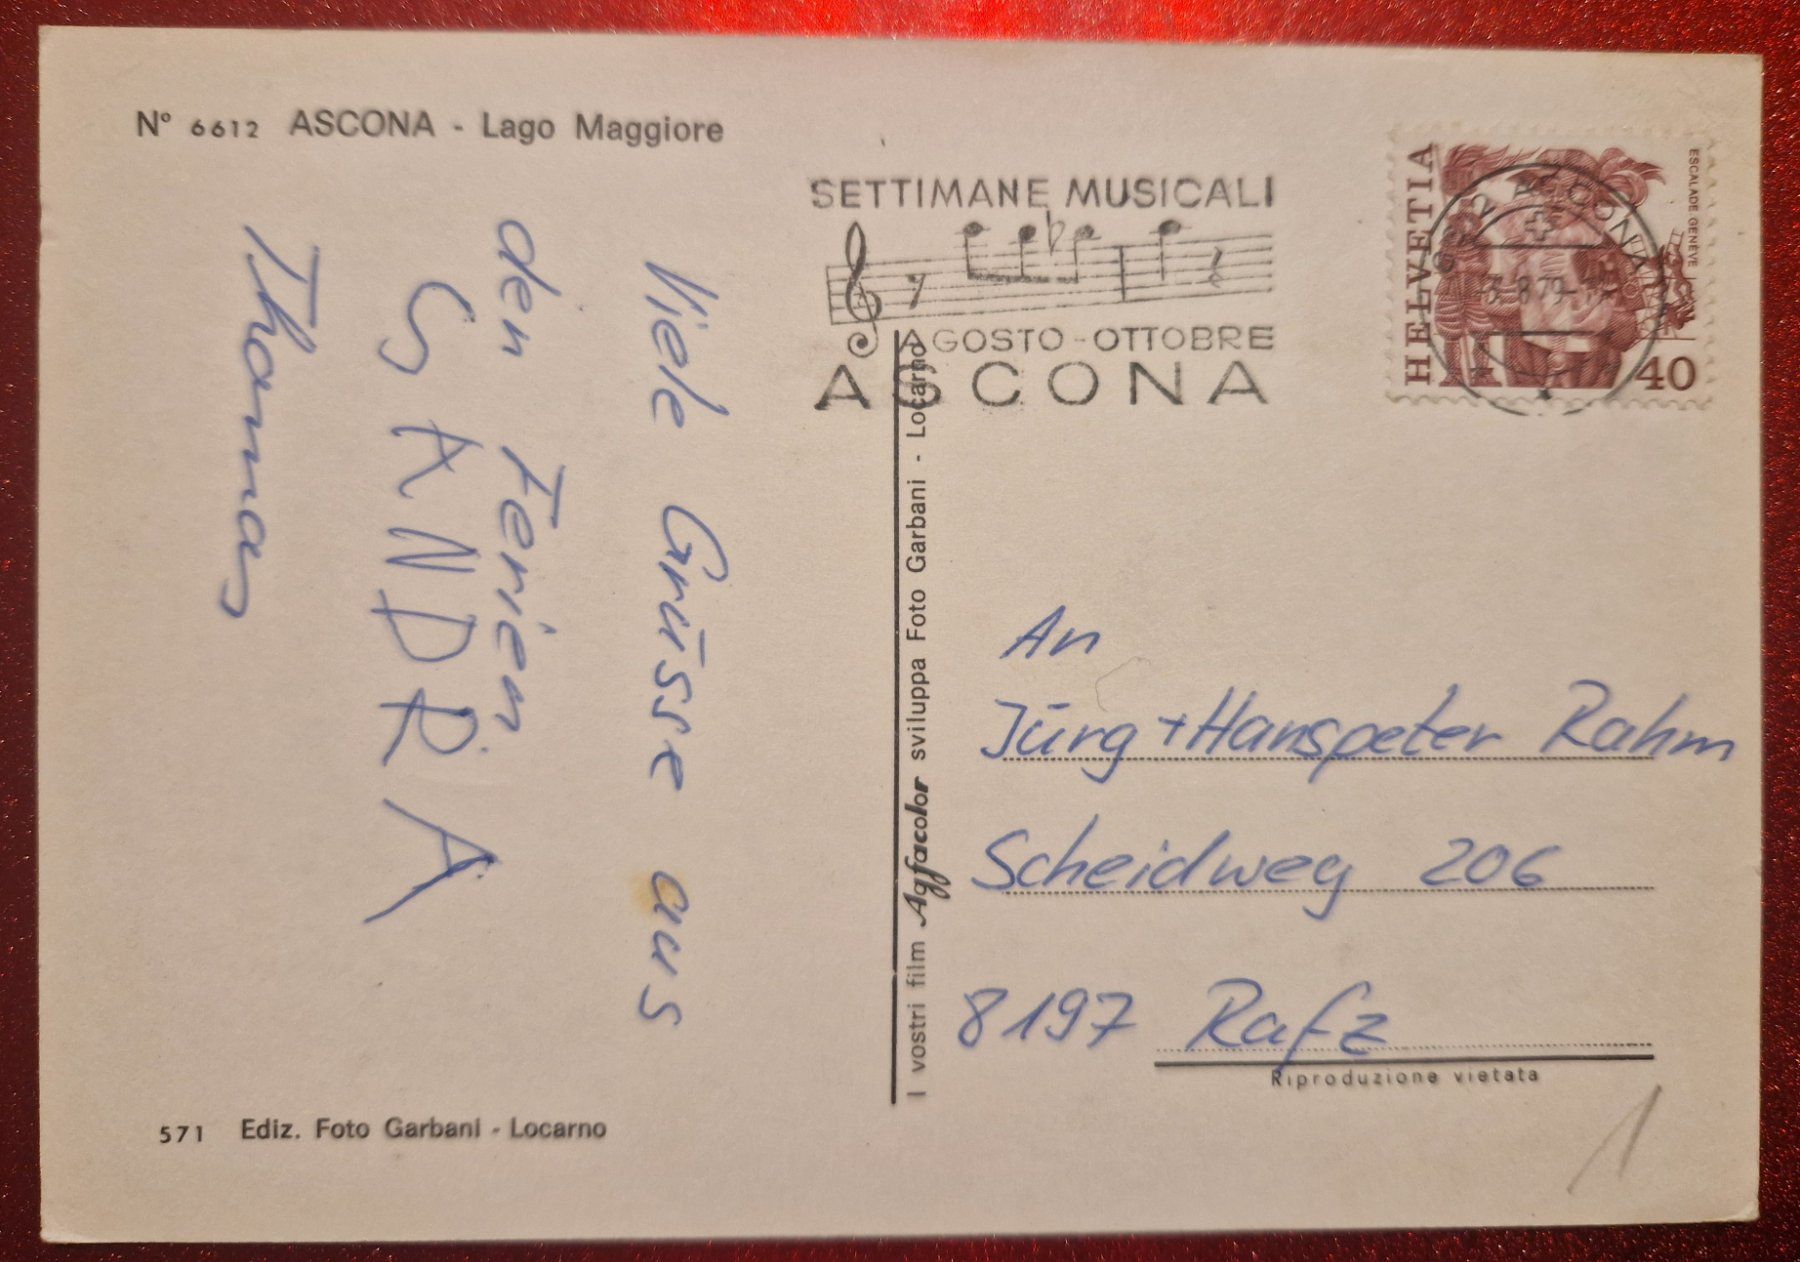 Nº 6612 ASCONA - Lago Maggiore
SETTIMANE MUSICALI
AGOSTO - OTTOBRE
ASCONA
HELVETIA
ESCALADE GENÈVE
40
ASCONA
8.79
Viele Grüsse aus
den Ferien
SANDRA
Thomas
I vostri film Agfacolor sviluppa Foto Garbani - Locarno
An
Jürg + Hanspeter Rahm
Scheidweg 206
8197 Rafz
Riproduzione vietata
571 Ediz. Foto Garbani - Locarno
1